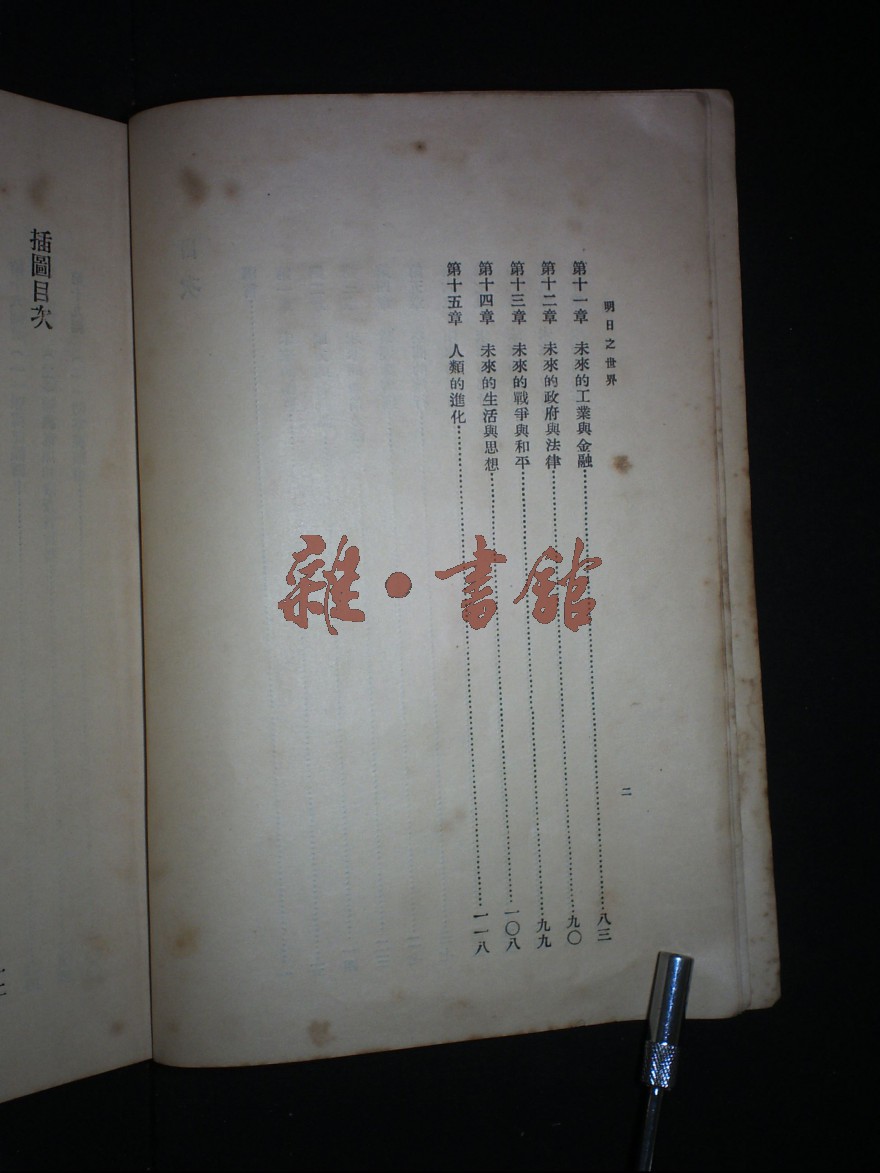 明日之世界
二
第十一章 未來的工業與金融……八三
第十二章 未來的政府與法律……九〇
第十三章 未來的戰爭與和平……九九
第十四章 未來的生活與思想……一〇八
第十五章 人類的進化……一一八
插圖目次
雜·書館